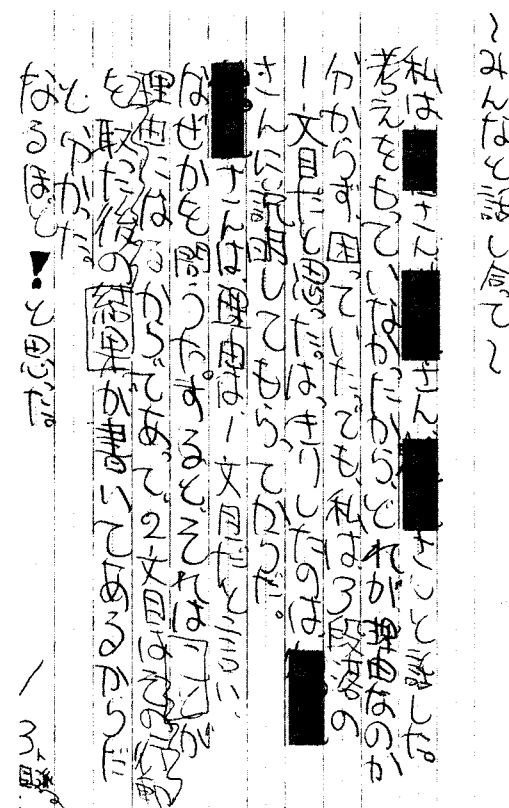 ～みんなと話し合って～
私は さん さん さんと話した。
考えをもっていなかったから、どれが理由なのか
分からず、困っていた。でも、私は3段落の
1文目だと思った。はっきりしたのは、
さんに説明してもらってからだ。
さんは理由は1文目だと言い、
なぜかを問うた。すると、それは が
理由には から であって、2文目は
を取った後の結果が書いてあるからだ
と分かった。
なるほど!と思った。